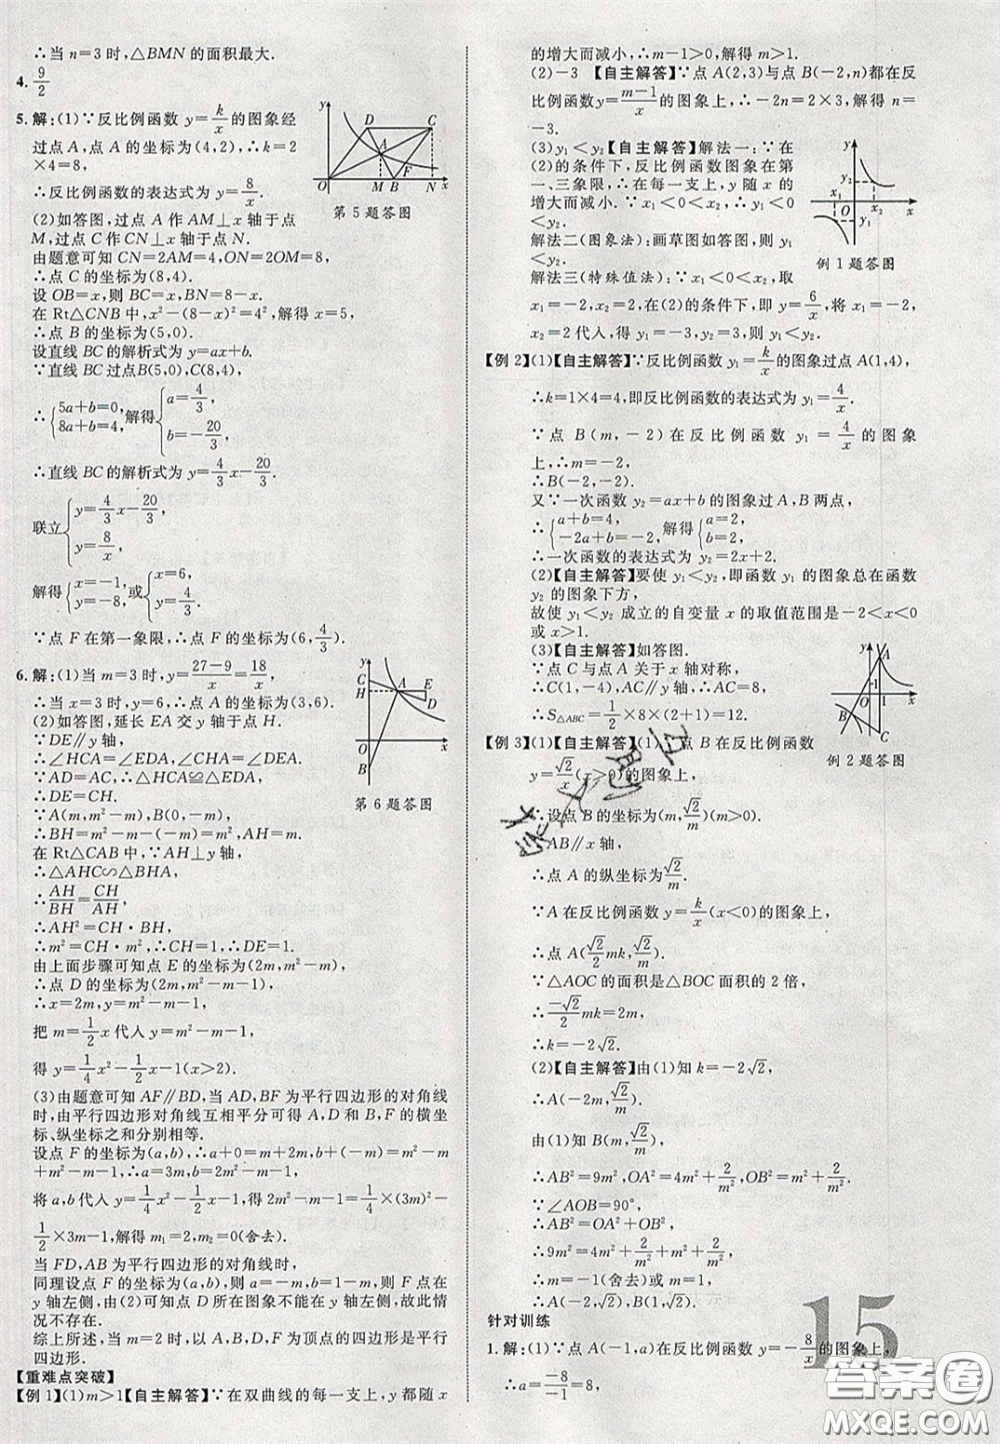 ∴当 n=3 时,△BMN 的面积最大.
4. 9/2
5. 解:(1)∵反比例函数 y=k/x 的图象经
过点 A,点 A 的坐标为(4,2),∴k=2
×4=8,
∴反比例函数的表达式为 y=8/x.
(2)如答图,过点 A 作 AM⊥x 轴于点
M,过点 C 作 CN⊥x 轴于点 N.
由题意可知 CN=2AM=4,ON=2OM=8,
∴点 C 的坐标为(8,4).
设 OB=x,则 BC=x,BN=8-x.
在 Rt△CNB 中,x²-(8-x)²=4²,解得 x=5,
∴点 B 的坐标为(5,0).
设直线 BC 的解析式为 y=ax+b.
∵直线 BC 过点B(5,0),C(8,4),
∴{5a+b=0, 8a+b=4, 解得{a=4/3, b=-20/3,
∴直线 BC 的解析式为 y=4/3x-20/3.
联立{y=4/3x-20/3, y=8/x,
解得{x=-1, y=-8,或{x=6, y=4/3.
∵点 F 在第一象限,∴点 F 的坐标为(6,4/3).
y D C A F O M B N x
第 5 题答图
6. 解:(1)当 m=3 时,y=(27-9)/x=18/x,
∴当 x=3 时,y=6,∴点 A 的坐标为(3,6).
(2)如答图,延长 EA 交 y 轴于点 H.
∵DE∥y 轴,
∴∠HCA=∠EDA,∠CHA=∠DEA.
∵AD=AC,∴△HCA≌△EDA,
∴HC=DE.
∵A(m,m²-m),B(0,-m),
∴BH=m²-m-(-m)=m²,AH=m.
在 Rt△CAB 中,∵AH⊥y 轴,
∴△AHC∽△BHA,
∴AH/BH=CH/AH,
∴AH²=CH·BH,
∴m²=CH·m²,∴CH=1,∴DE=1.
由上面步骤可知点 E 的坐标为(2m,m²-m),
∴点 D 的坐标为(2m,m²-m-1),
∴x=2m,y=m²-m-1.
把 m=1/2x 代入 y=m²-m-1,
得 y=1/4x²-1/2x-1(x>2).
y C H A E D O x B
第 6 题答图
(3)由题意可知 AF∥BD,当 AD,BF 为平行四边形的对角线
时,由平行四边形对角线互相平分可得 A,D 和 B,F 的横坐
标、纵坐标之和分别相等.
设点 F 的坐标为(a,b),∴a+0=m+2m,b+(-m)=m²-
m+m²-m-1,∴a=3m,b=2m²-m-1,
将 a,b代入 y=1/4x²-1/2x-1,得 2m²-m-1=1/4×(3m)²-
1/2×3m-1,解得 m₁=2,m₂=0(舍去).
当 FD,AB 为平行四边形的对角线时,
同理设点 F 的坐标为(a,b),则 a=-m,b=1-m,则 F 点在
y 轴左侧,由(2)可知点 D 所在图象不能在 y 轴左侧,故此情
况不存在.
综上所述,当 m=2 时,以 A,B,D,F 为顶点的四边形是平行
四边形.
【重难点突破】
【例 1】(1)m>1【自主解答】∵在双曲线的每一支上,y 都随 x
的增大而减小,∴m-1>0,解得 m>1.
(2)-3 【自主解答】∵点 A(2,3)与点 B(-2,n)都在反
比例函数y=(m-1)/x的图象上,∴-2n=2×3,解得 n=
-3.
(3)y₁<y₂【自主解答】解法一:∵在
(2)的条件下,反比例函数图象在第
一、三象限,∴在每一支上,y 随 x 的
增大而减小.∵x₁<0<x₂,∴y₁<y₂.
解法二(图象法):画草图如答图,则 y₁
<y₂.
解法三(特殊值法):∵x₁<0<x₂,取
x₁=-2,x₂=2,在(2)的条件下,即 y=6/x,将 x₁=-2,
x₂=2代入,得 y₁=-3,y₂=3,则 y₁<y₂.
y y₂ x₁ O x₂ x y₁
例 1 题答图
【例 2】(1)【自主解答】∵反比例函数 y₁=k/x的图象过点 A(1,4),
∴k=1×4=4,即反比例函数的表达式为 y₁=4/x.
∵点 B(m,-2)在反比例函数 y₁=4/x 的图象
上,∴m=-2,
∴B(-2,-2).
又∵一次函数 y₂=ax+b 的图象过 A,B 两点,
∴{a+b=4, -2a+b=-2,解得{a=2, b=2,
∴一次函数的表达式为 y₂=2x+2.
(2)【自主解答】要使 y₁<y₂,即函数 y₁ 的图象总在函数
y₂ 的图象下方,
故使 y₁<y₂ 成立的自变量 x 的取值范围是-2<x<0
或 x>1.
(3)【自主解答】如答图.
∵点 C 与点 A 关于 x 轴对称,
∴C(1,-4),AC∥y 轴,AC=8,
∴S△ABC=1/2×8×(2+1)=12.
y A 1 1 x B C
例 2 题答图
【例 3】(1)【自主解答】(1)∵点 B 在反比例函数
y=√2/x(x>0)的图象上,
∴设点 B 的坐标为(m,√2/m)(m>0).
∵AB∥x 轴,
∴点 A 的纵坐标为√2/m.
∵A 在反比例函数 y=k/x(x<0)的图象上,
∴点 A(√2/2mk,√2/m).
∵△AOC 的面积是△BOC 面积的 2 倍,
∴-√2/2mk=2m,
∴k=-2√2.
(2)【自主解答】由(1)知 k=-2√2,
∴A(-2m,√2/m).
由(1)知 B(m,√2/m),
∴AB²=9m²,OA²=4m²+2/m²,OB²=m²+2/m².
∵∠AOB=90°,
∴AB²=OA²+OB²,
∴9m²=4m²+2/m²+m²+2/m²,
∴m=-1(舍去)或 m=1,
∴A(-2,√2),B(1,√2).
针对训练
1. 解:(1)∵点 A(-1,a)在反比例函数 y=-8/x的图象上,
∴a=-8/-1=8,
15
答案圈
MXQE.COM